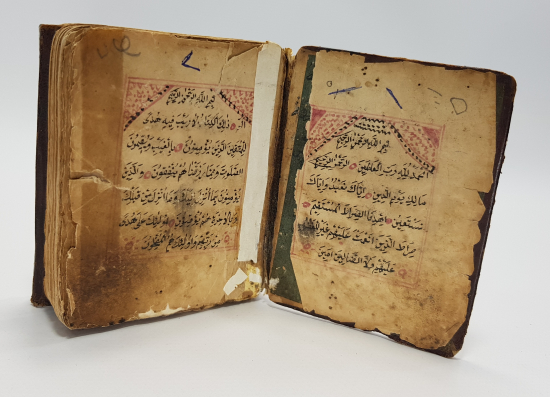 بسم الله الرحمن الرحيم
الحمد لله رب العالمين الرحمن الرحيم
مالك يوم الدين اياك نعبد واياك
نستعين اهدنا الصراط المستقيم
صراط الذين انعمت عليهم غير
عليهم ولا الضالين امين
بسم الله الرحمن الرحيم
الم ذلك الكتاب لا ريب فيه هدى
للمتقين الذين يؤمنون بالغيب ويقيمون
الصلوة ومما رزقناهم ينفقون والذين
يؤمنون بما انزل اليك وما انزل من قبلك
وبالاخرة هم يوقنون اولئك على هدى
من ربهم واولئك هم المفلحون